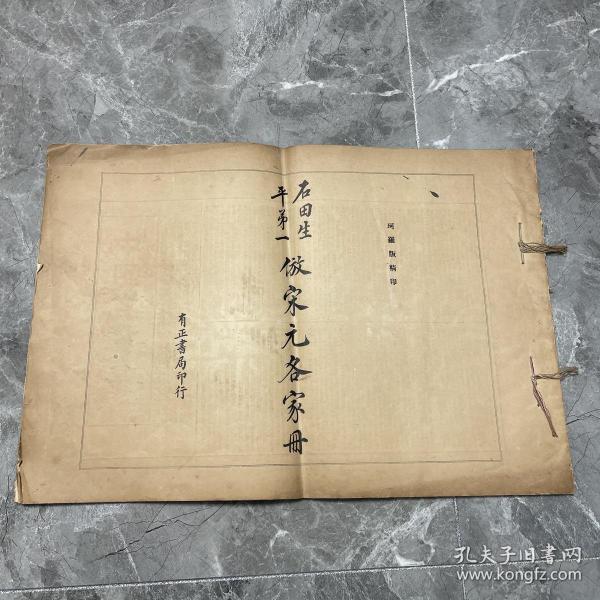 珂羅版精印
石田生
平第一
倣宋元各家冊
有正書局印行
孔夫子旧書网
www.kongfz.com